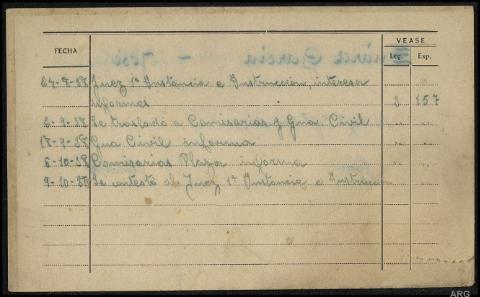 VEASE
FECHA
Leg. Exp.
Juez 1ª Instancia e Instrucción, interesa
informes 3 157
Se traslada a Comisarios y Gua Civil " "
Gua Civil informa " "
6-10-38 Comisarios Plaza informa " "
9-10-38 Se contestó al Juez 1ª Instancia e Instrucción
ARG